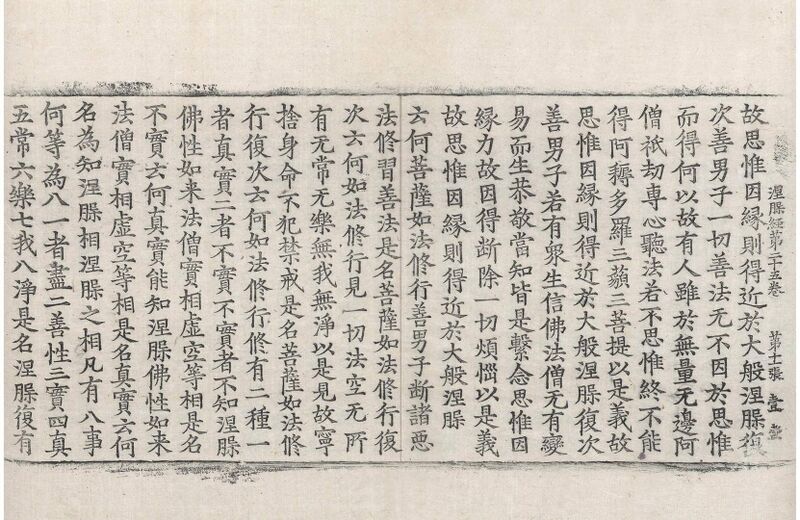 涅槃經苐二十五卷 苐十張
故思惟因縁則得近於大般涅槃復
次善男子一切善法无不因於思惟
而得何以故有人雖於無量无邊阿
僧祇劫專心聽法若不思惟終不能
得阿耨多羅三藐三菩提以是義故
思惟因縁則得近於大般涅槃復次
善男子若有衆生信佛法僧无有變
易而生恭敬當知皆是繫念思惟因
縁力故因得断除一切煩惱以是義
故思惟因縁則得近於大般涅槃
云何菩薩如法修行善男子断諸惡
法修習善法是名菩薩如法修行復
次云何如法修行見一切法空无所
有无常无樂無我無淨以是見故寧
捨身命不犯禁戒是名菩薩如法修
行復次云何如法修行修有二種一
者真實二者不實不實者不知涅槃
佛性如来法僧實相虛空等相是名
不實云何真實能知涅槃佛性如来
法僧實相虛空等相是名真實云何
名為知涅槃相涅槃之相凡有八事
何等為八一者盡二善性三實四真
五常六樂七我八淨是名涅槃復有